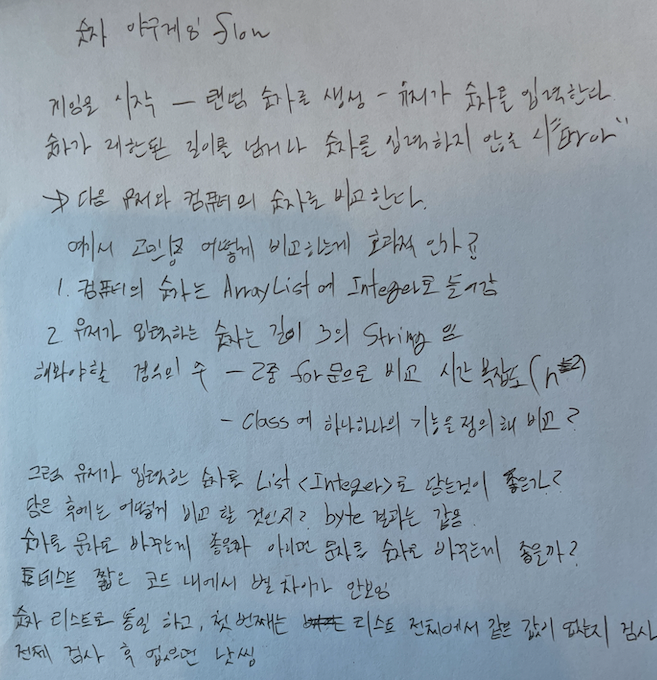 숫자 야구게임 flow
게임을 시작 — 랜덤 숫자를 생성 - 유저가 숫자를 입력한다
숫자가 제한된 길이를 넘거나 숫자를 입력하지 않을 시
→ 다음 유저와 컴퓨터의 숫자를 비교한다.
여기서 고민점 어떻게 비교하는게 효과적 인가?
1. 컴퓨터의 숫자는 ArrayList에 Integer로 들어감
2 유저가 입력하는 숫자는 길이 3의 String 임
해봐야할 경우의 수 — 2중 for문으로 비교 시간 복잡도 (n^2)
- Class에 하나하나의 기능을 정의해 비교?
그럼 유저가 입력한 숫자를 List <Integer>로 담는것이 좋은가?
담은 후에는 어떻게 비교 할 것인지? byte 결과는 같음
숫자를 문자로 바꾸는게 좋을까 아니면 문자를 숫자로 바꾸는게 좋을까?
테스트 짧은 코드 내에서 별 차이가 안보임
숫자 리스트로 통일 하고, 첫 번째는 리스트 전체에서 같은 값이 없는지 검사
전체 검사 후 없으면 낫씽